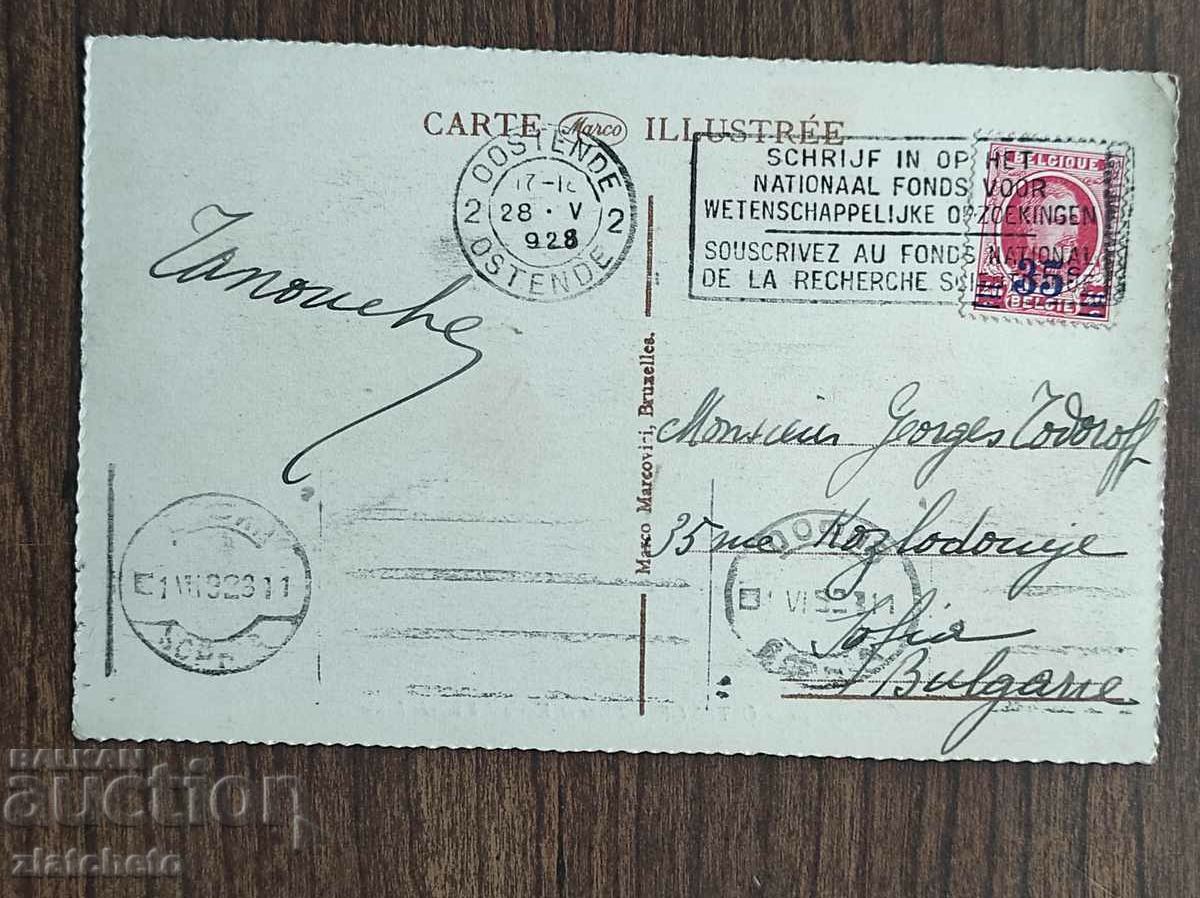 CARTE Marco ILLUSTRÉE
OOSTENDE
2 2
28 · V
928
OSTENDE
SCHRIJF IN OP HET
NATIONAAL FONDS VOOR
WETENSCHAPPELIJKE OPZOEKINGEN
SOUSCRIVEZ AU FONDS NATIONAL
DE LA RECHERCHE
BELGIQUE
35
BELGIË
Marco Marcovici, Bruxelles.
Monsieur Georges Todoroff
35 rue Kozlodouje
Sofia
Bulgarie
BALKAN
auction
zlatcheto